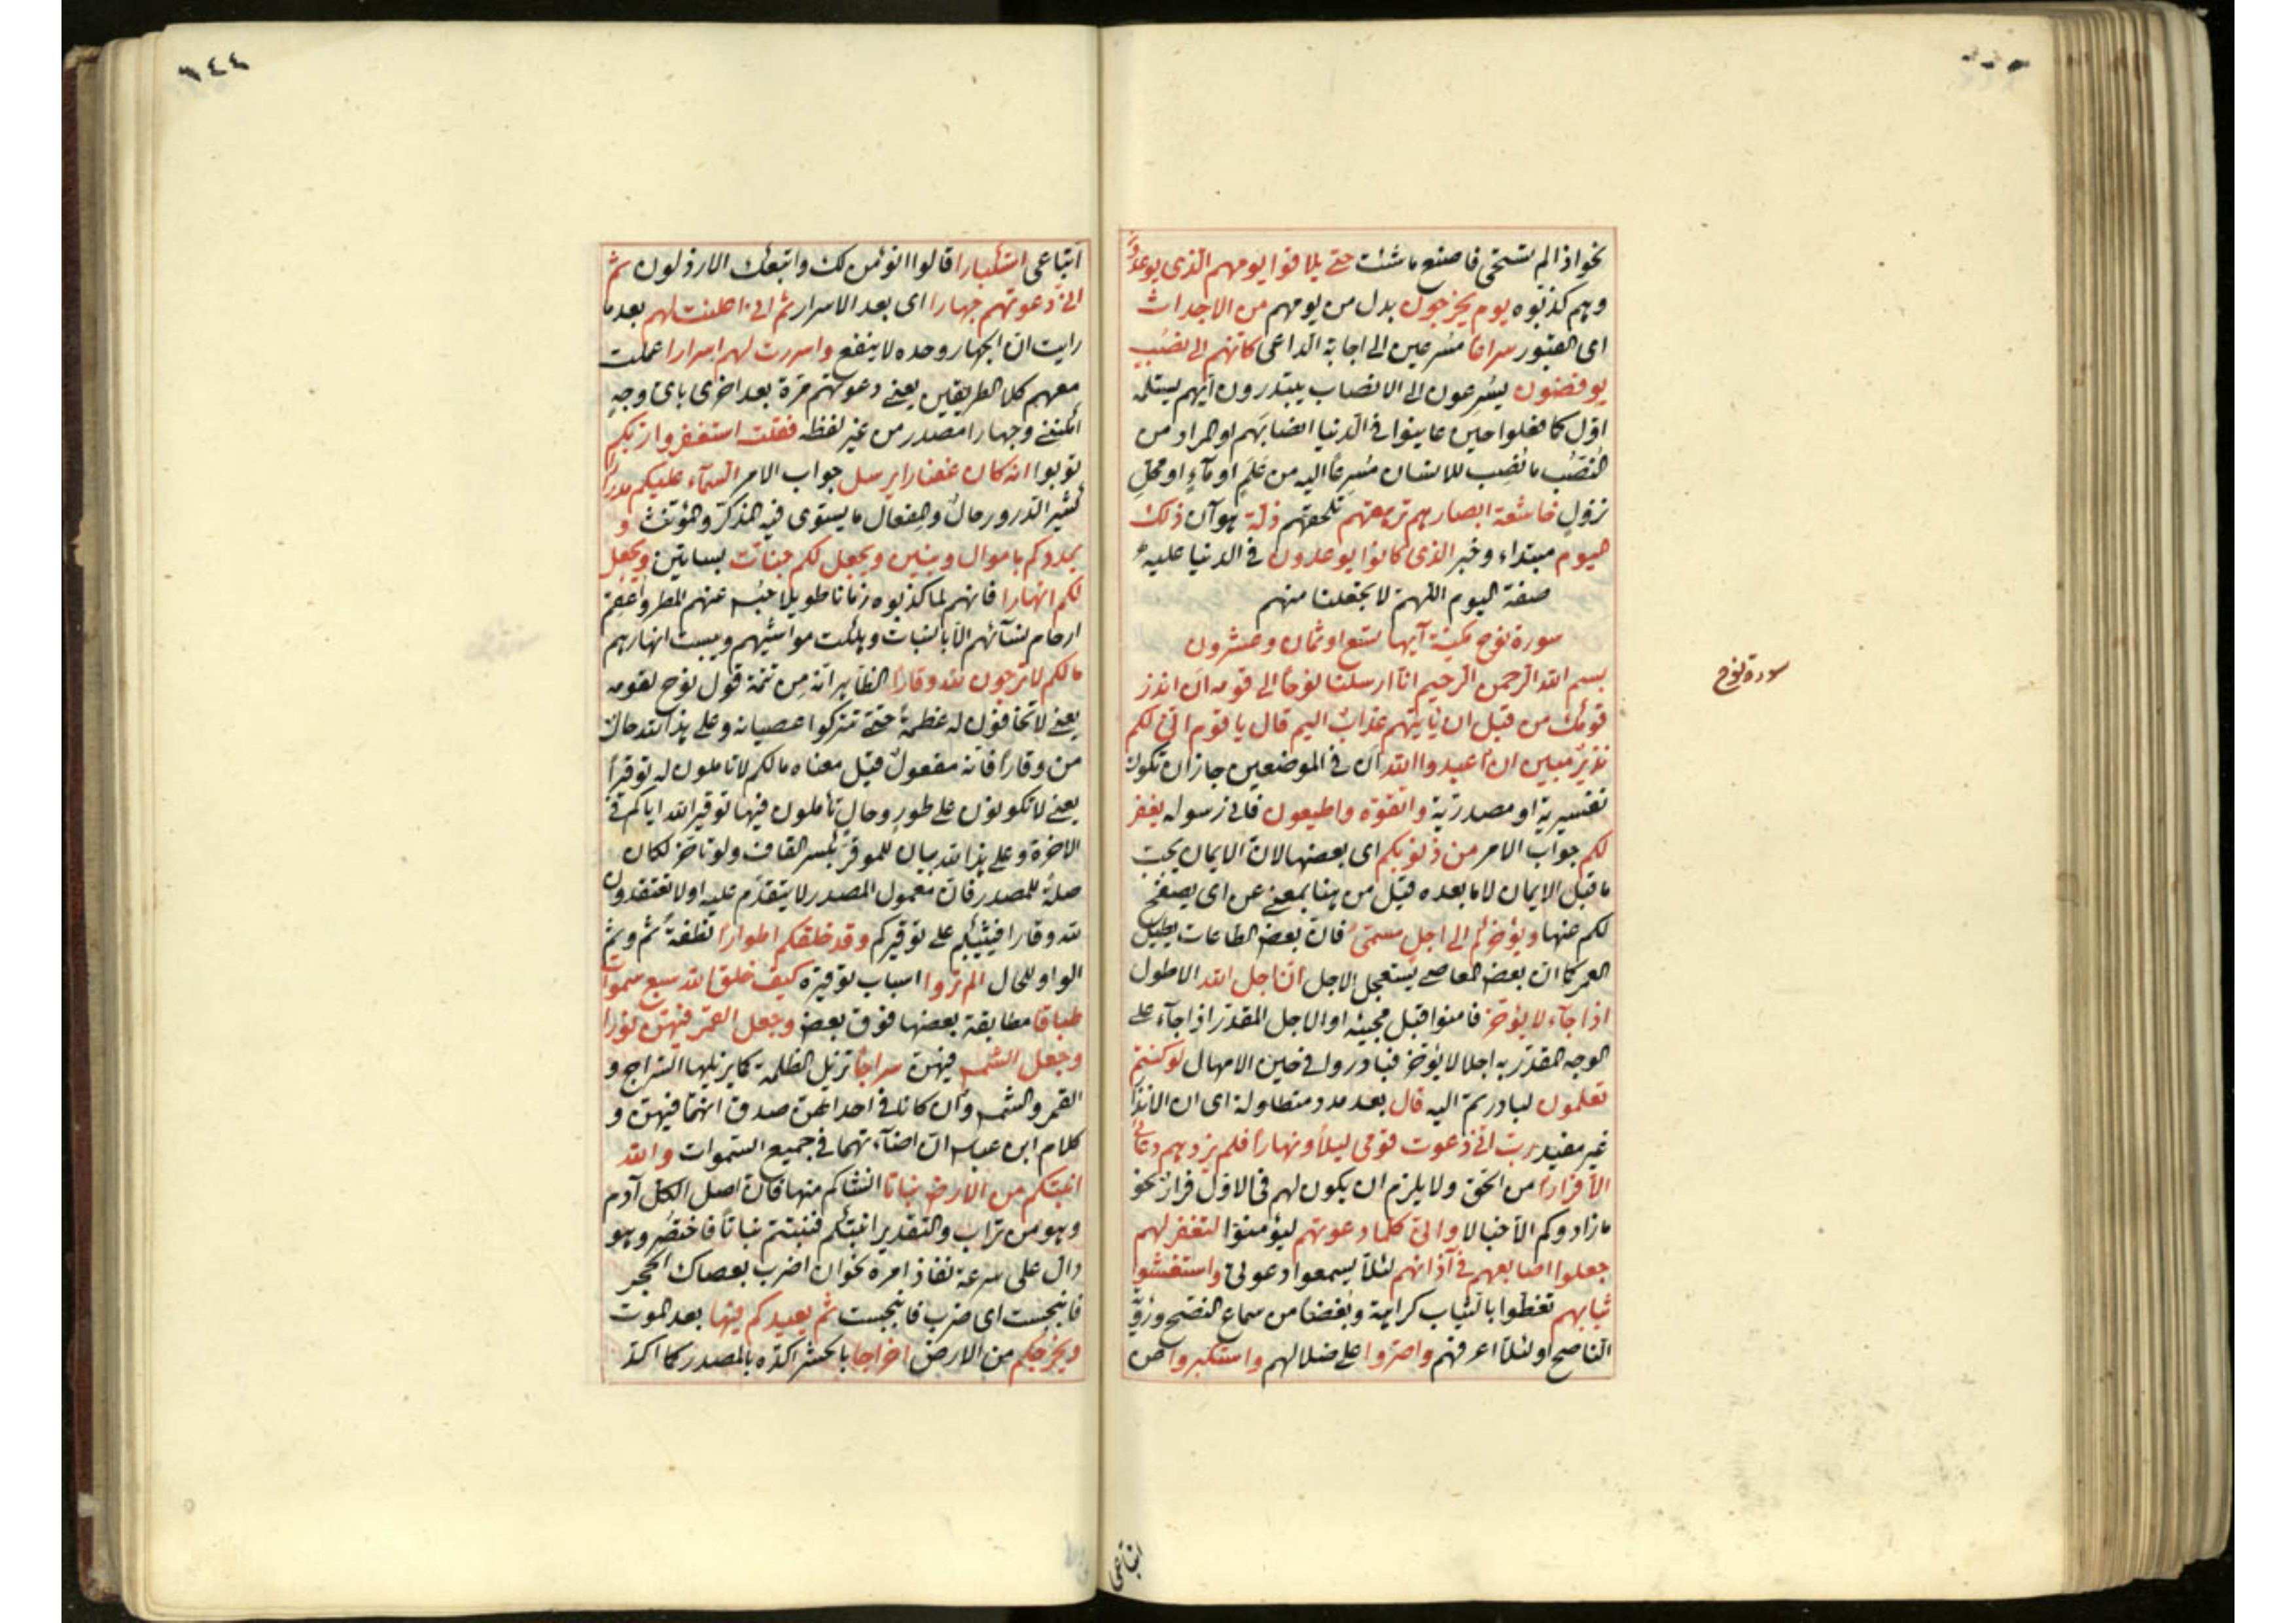 نحو اذا لم تستحى فاصنع ما شئت حتى يلاقوا يومهم الذى يوعدون
وهم كذبوه يوم يخرجون بدل من يومهم من الاجداث
اى القبور سراعًا مسرعين الى اجابة الداعى كانهم الى نصب
يوفضون يسرعون الى الانصاب يبتدرون ايهم يستلمه
اول كما فعلوا حين عاينوا فى الدنيا انصابهم او المراد من
النصب ما نُصب للانسان مسرعًا اليه من علم او ماء او محل
نزول خاشعة ابصارهم ترهقهم تلحقهم ذلة هو آن ذلك
اليوم مبتداء وخبر الذى كانوا يوعدون فى الدنيا عليه
صفة اليوم اللهم لا تجعلنا منهم
سورة نوح مكية آيها تسع او ثمان وعشرون
سورة نوح
بسم الله الرحمن الرحيم انا ارسلنا نوحا الى قومه ان انذر
قومك من قبل ان ياتيهم عذاب اليم قال يا قوم انى لكم
نذير مبين ان اعبدوا الله ان فى الموضعين جاز ان تكون
تفسيرية او مصدرية واتقوه واطيعون فانى رسوله يغفر
لكم جواب الامر من ذنوبكم اى بعضها لان الايمان يجب
ما قبل الايمان لا ما بعده قيل من هنا بمعنى عن اى يصفح
لكم عنها ويؤخركم الى اجل مسمى فان بعض الطاعات يطيل
العمر كما ان بعض المعاصى يستعجل الاجل ان اجل الله الاطول
اذا جاء لا يؤخر فامنوا قبل مجيئه او الاجل المقدر اذا جاء على
الوجه المقدر به اجلا لا يؤخر فبادروا فى حين الامهال لو كنتم
تعلمون لبادرتم اليه قال بعد مدد متطاولة اى ان الانذار
غير مفيد رب انى دعوت قومى ليلًا ونهارا فلم يزدهم دعائى
الا فرارًا من الحق ولا يلزم ان يكون لهم فى الاول فرار نحو
ما زادوكم الا خبالا وانى كلما دعوتهم ليؤمنوا لتغفر لهم
جعلوا اصابعهم فى آذانهم لئلا يسمعوا دعوتى واستغشوا
ثيابهم تغطوا بالثياب كراهية وبغضا من سماع النصح ورؤية
الناصح او لئلا اعرفهم واصروا على ضلالهم واستكبروا عن
اتباعى
٦٤٤
اتباعى استكبارا قالوا انؤمن لك واتبعك الارذلون ثم
انى دعوتهم جهارا اى بعد الاسرار ثم انى اعلنت لهم بعد ما
رايت ان الجهار وحده لا ينفع واسررت لهم اسرارا عملت
معهم كلا الطريقين يعنى دعوتهم مرة بعد اخرى باى وجه
امكننى وجهارا مصدر من غير لفظه فقلت استغفروا ربكم
توبوا انه كان غفارا يرسل جواب الامر السماء عليكم مدرارا
كثير الدرور حال والمفعال ما يستوى فيه المذكر والمؤنث و
يمددكم باموال وبنين ويجعل لكم جنات بساتين ويجعل
لكم انهارا فانهم لما كذبوه زمانا طويلا حبس عنهم المطر واعقم
ارحام نسآئهم وهلكت مواشيهم ويبست انهارهم
ما لكم لا ترجون لله وقارًا الظاهر انه من تتمة قول نوح لقومه
يعنى لا تخافون له عظمة حتى تتركوا عصيانه وعلى هذا لله حال
من وقارا فانه مفعول قيل معناه ما لكم لا تاملون له توقيرا
يعنى لا تكونون على طور وحال تأملون فيها توقير الله اياكم فى
الاخرة وعلى هذا لله بيان للموقر بكسر القاف ولو تاخر لكان
صلة للمصدر فان معمول المصدر لا يتقدم عليه او لا تعتقدون
لله وقارا فيثيبكم على توقيركم وقد خلقكم اطوارا نطفة ثم وثم
الواو للحال الم تروا اسباب توقيره كيف خلق الله سبع سموات
طباقا مطابقة بعضها فوق بعض وجعل القمر فيهن نورا
وجعل الشمس فيهن سراجا تزيل الظلمة كما يزيلها السراج و
القمر والشمس وان كانا فى احداهن صدق انهما فيهن و
كلام ابن عباس ان اضآءتهما فى جميع السموات والله
انبتكم من الارض نباتا انشاكم منها فان اصل الكل آدم
وهو من تراب والتقدير انبتكم فنبتم نباتًا فاختصر وهو
دال على سرعة نفاذ امره نحو ان اضرب بعصاك الحجر
فانبجست اى ضرب فانبجست ثم يعيدكم فيها بعد الموت
ويخرجكم من الارض اخراجا بالحشر اكده بالمصدر كما اكد